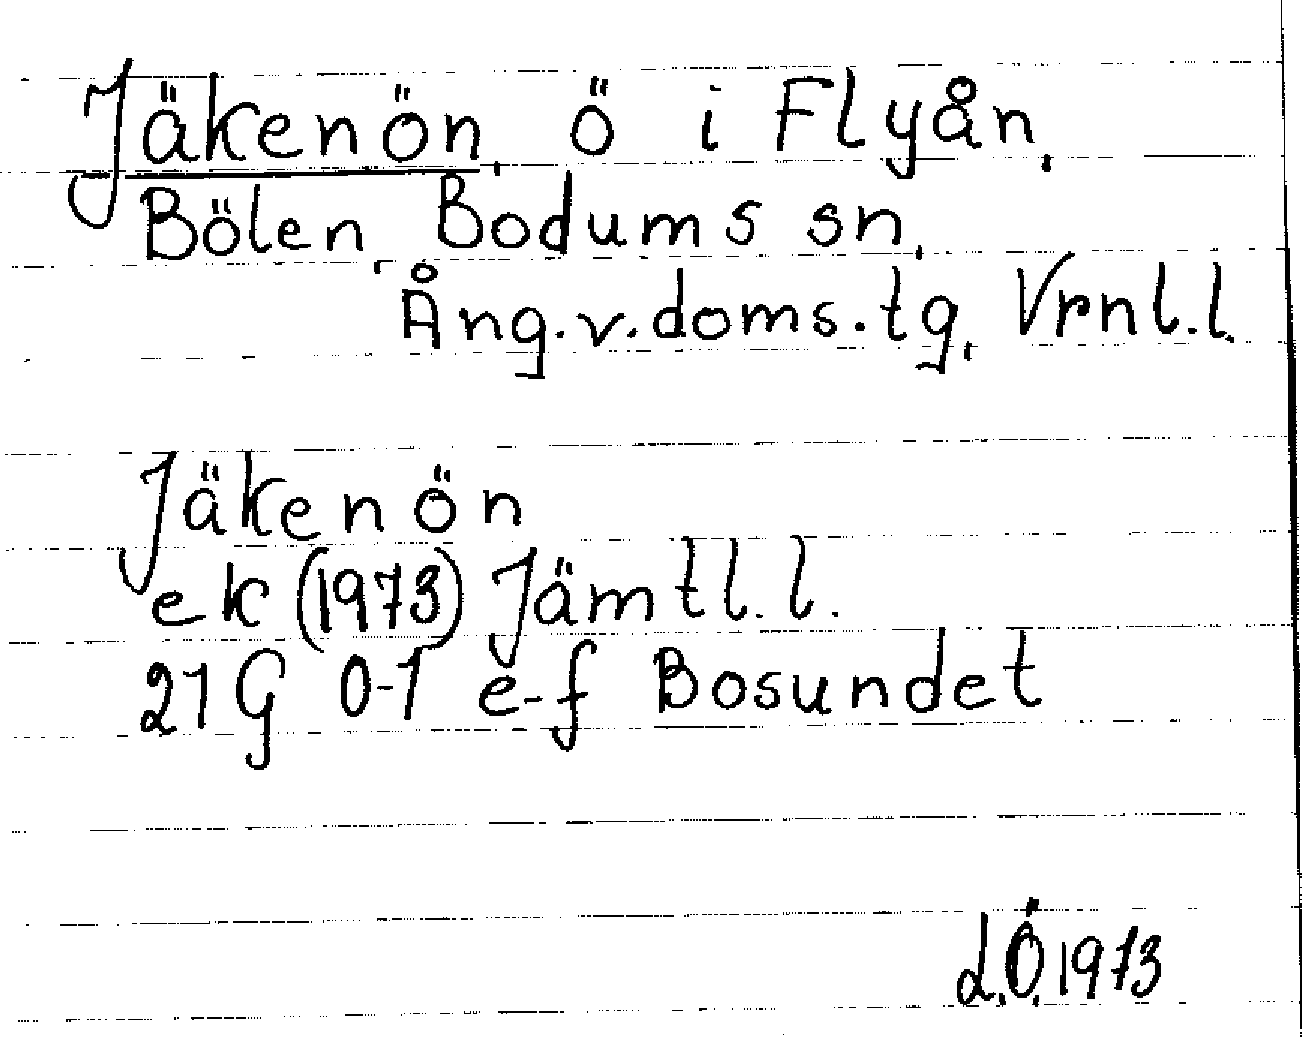 Jäkenön, ö i Flyån,
Bölen, Bodums sn,
Ång.v.doms.tg, Vrnl.l.
Jäkenön
ek (1973) Jämtl.l.
21G 0-1 e-f Bosundet
L.Ö. 1973